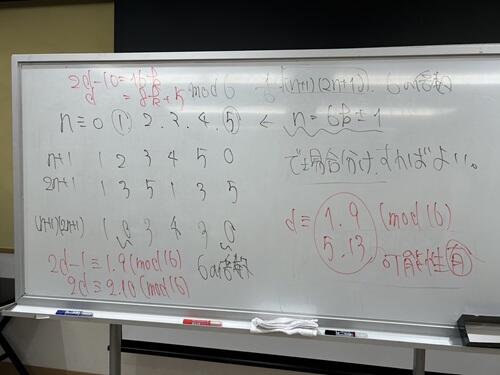 2d-10=16k
d=8k+5
mod 6
1/6 n(n+1)(2n+1), 6の倍数
n≡0 1. 2. 3. 4. 5 ← n=6k±1
n+1 1 2 3 4 5 0
で場合分けすればよい。
2n+1 1 3 5 1 3 5
(n+1)(2n+1) 1 0 3 4 3 0
6の倍数
d≡ 1.9 (mod 16)
5.13
可能性有
2d-1≡1.9(mod 16)
2d≡2.10(mod 16)